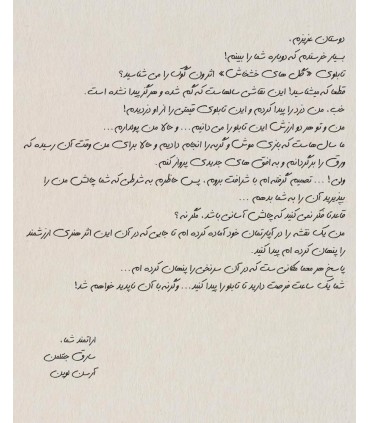 دوستان عزیزم،
بسیار خرسندم که دوباره شما را ببینم!
تابلوی «گل های خشخاش» اثر ون گوگ را می شناسید؟
قطعا که میشناسید! این نقاشی سالهاست که گم شده و هرگز پیدا نشده است.
خب، من دزد را پیدا کردم و این تابلوی قیمتی را از او دزدیدم!
من و تو هر دو ارزش این تابلو را می دانیم... و حالا من پولدارم...
ما سال هاست که بازی موش و گربه را انجام دادیم و حالا برای من وقت آن رسیده که
ورق را برگردانم و به افق های جدیدی پرواز کنم.
ولی!... تصمیم گرفته ام با شرافت بروم، پس حاظرم به شرطی که شما چالش من را
بپذیرید آن را به شما بدهم...
قاعدتا فکر نمی کنید که چالش آسانی باشد، مگر نه؟
من یک نقشه را در آپارتمان خود آماده کرده ام تا جایی که در آن این اثر هنری ارزشمند
را پنهان کرده ام پیدا کنید.
پاسخ هر معما مکانی ست که در آن سرنخی را پنهان کرده ام...
شما یک ساعت فرصت دارید تا تابلو را پیدا کنید... وگرنه با آن ناپدید خواهم شد!
ارادتمند شما،
سارق جنتلمن
آرسن لوپن